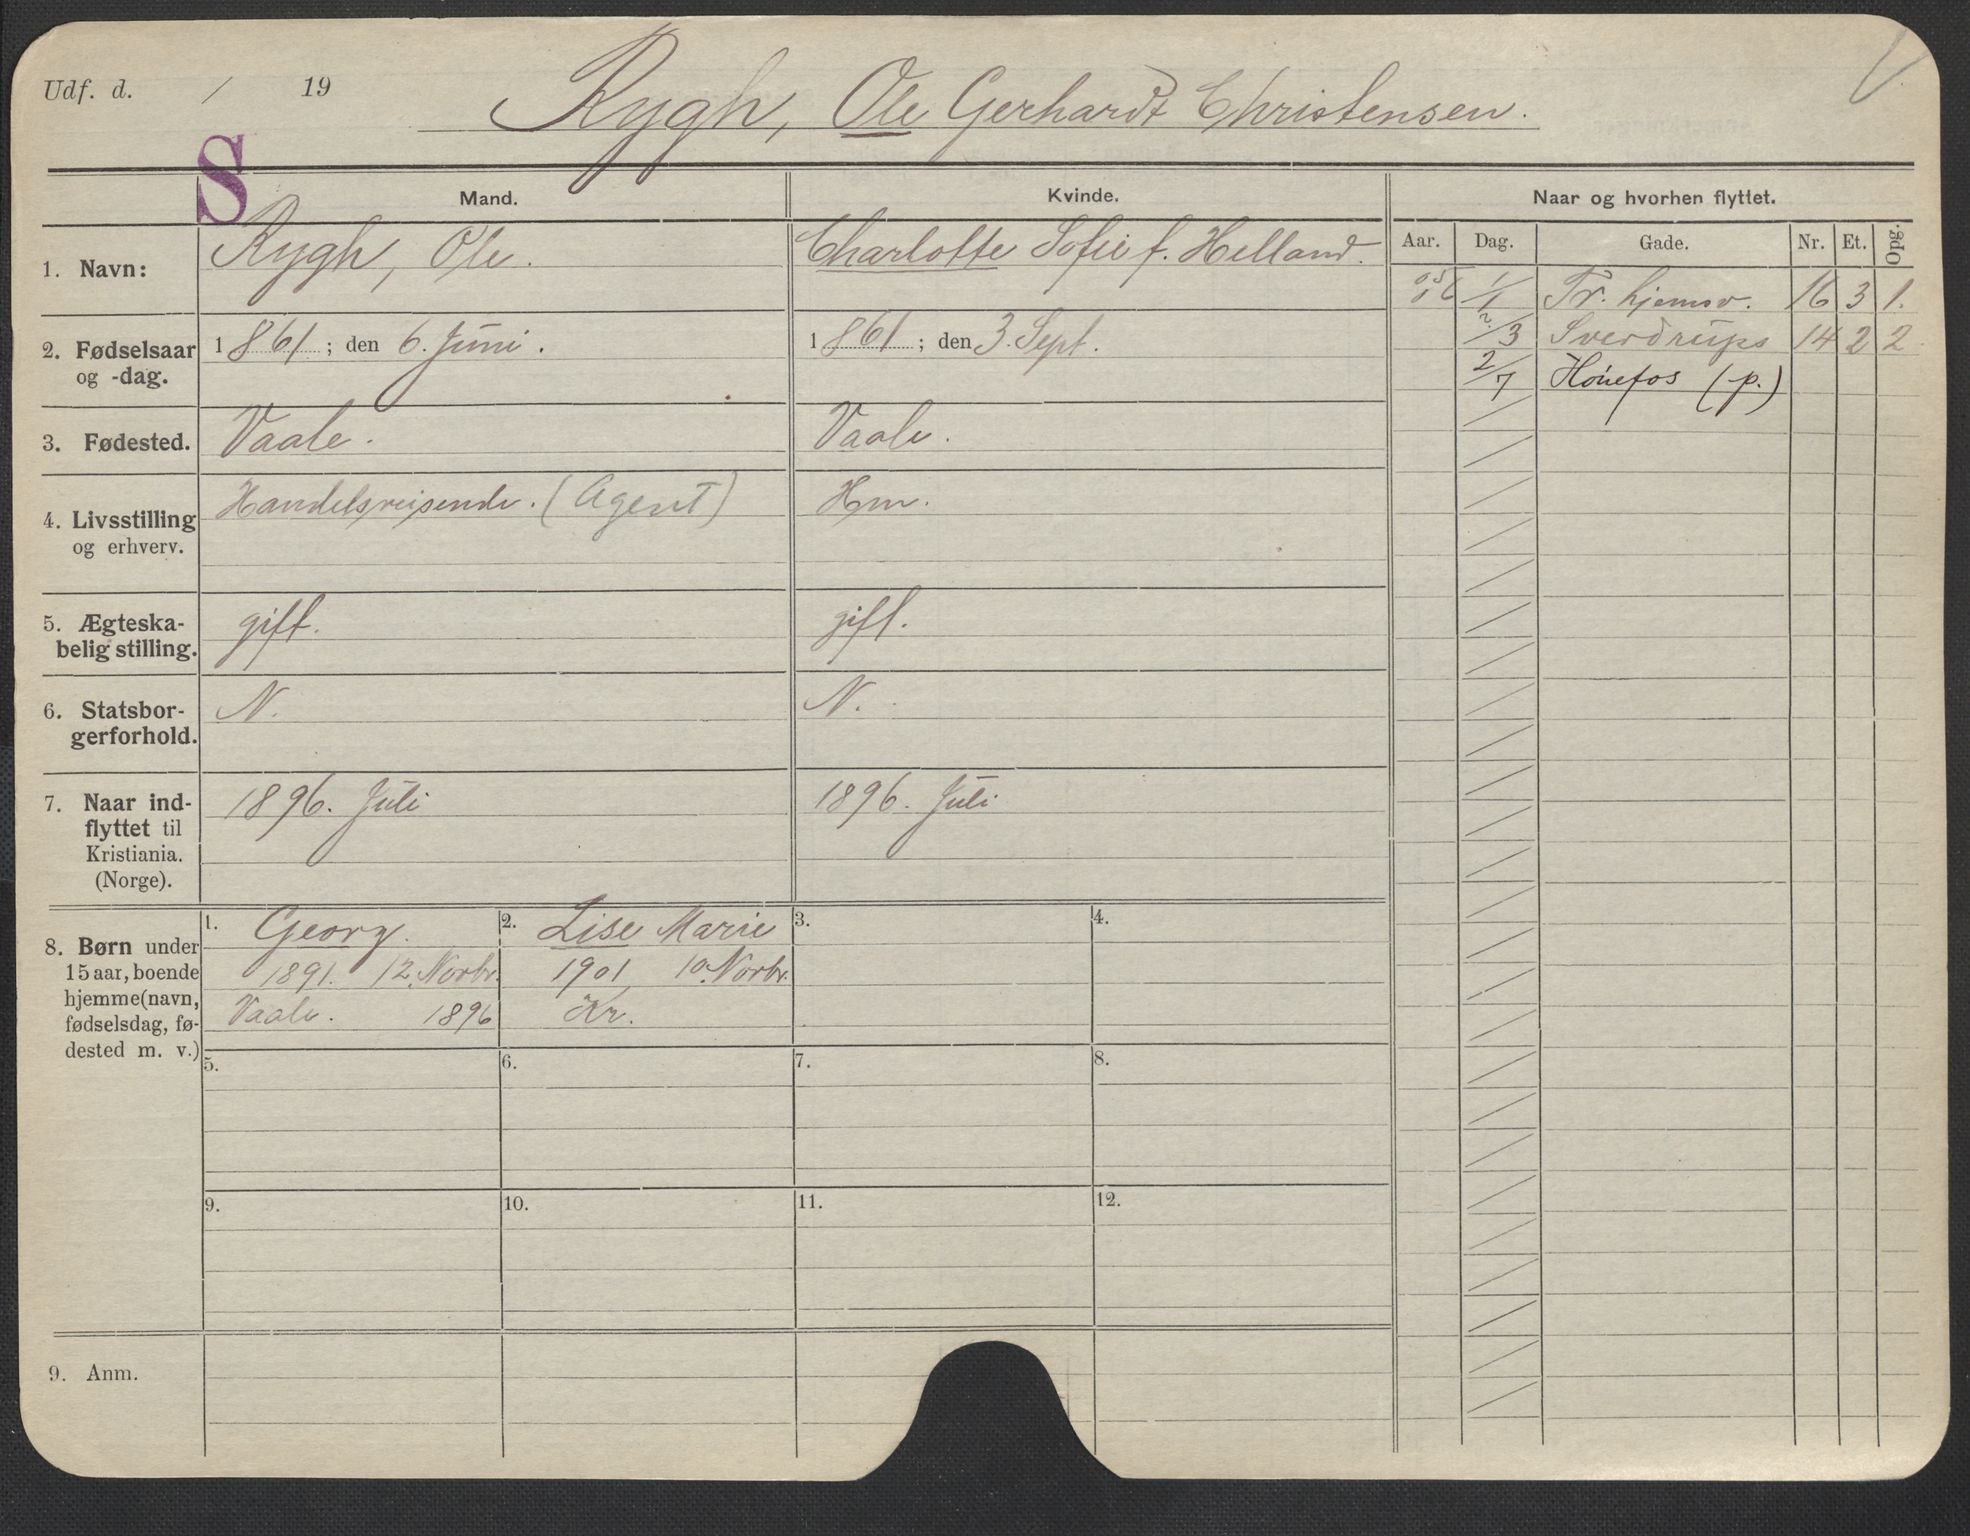 Udf. d. / 19
Rygh, Ole Gerhardt Christensen.
S
Mand.
Kvinde.
Naar og hvorhen flyttet.
Aar. Dag. Gade. Nr. Et. Opg.
1. Navn:
Rygh, Ole.
Charlotte Sofie f. Helland.
1/1 Tr. hjemsv. 16 3 1.
/3 Sverdrups 14 2 2
2/7 Hönefos (p.)
2. Fødselsaar
og -dag.
1861; den 6. Juni.
1861; den 3. Sept.
3. Fødested.
Vaale.
Vaale.
4. Livsstilling
og erhverv.
Handelsreisende. (Agent)
Hm.
5. Ægteska-
belig stilling.
gift.
gift.
6. Statsbor-
gerforhold.
N.
N.
7. Naar ind-
flyttet til
Kristiania.
(Norge).
1896. Juli
1896. Juli
8. Børn under
15 aar, boende
hjemme (navn,
fødselsdag, fø-
dested m. v.)
1. Georg.
1891. 12. Novbr.
Vaale. 1896
2. Lise Marie
1901 10. Novbr.
Kr.
3.
4.
5.
6.
7.
8.
9.
10.
11.
12.
9. Anm.